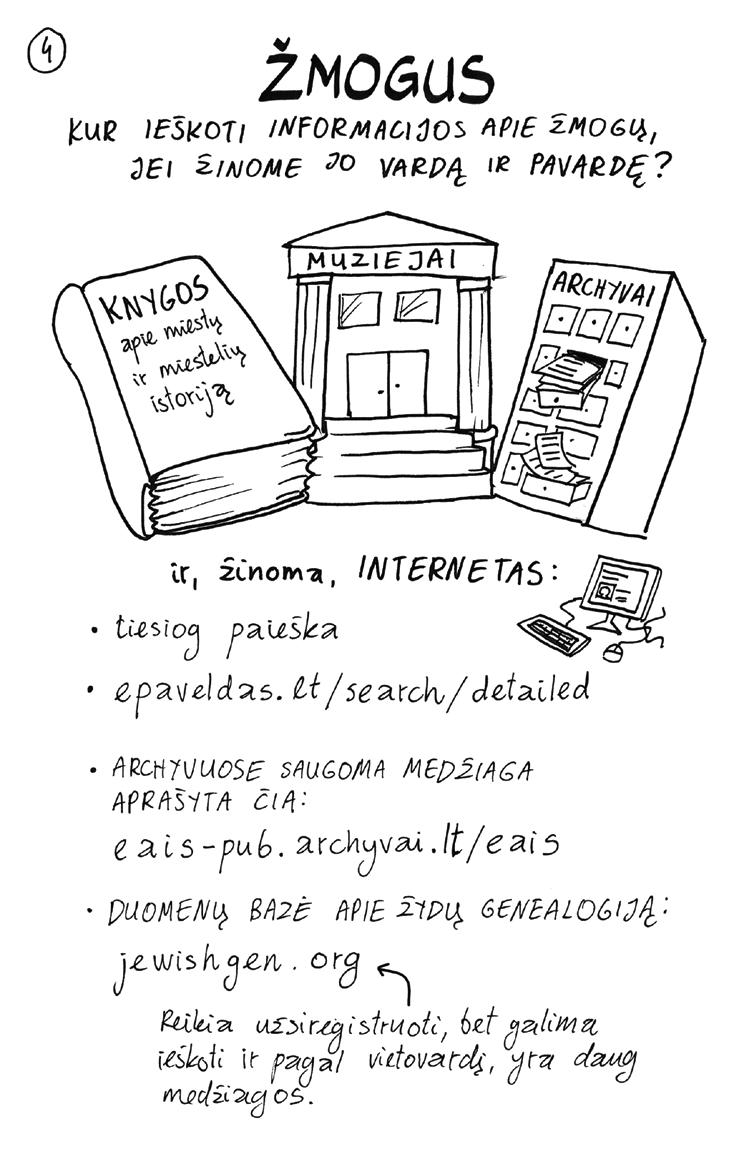 4
ŽMOGUS
KUR IEŠKOTI INFORMACIJOS APIE ŽMOGŲ,
JEI ŽINOME JO VARDĄ IR PAVARDĘ?
KNYGOS
apie miestų
ir miestelių
istoriją
MUZIEJAI
ARCHYVAI
ir, žinoma, INTERNETAS:
• tiesiog paieška
• epaveldas.lt/search/detailed
• ARCHYVUOSE SAUGOMA MEDŽIAGA
APRAŠYTA ČIA:
eais-pub.archyvai.lt/eais
• DUOMENŲ BAZĖ APIE ŽYDŲ GENEALOGIJĄ:
jewishgen.org
Reikia užsiregistruoti, bet galima
ieškoti ir pagal vietovardį, yra daug
medžiagos.